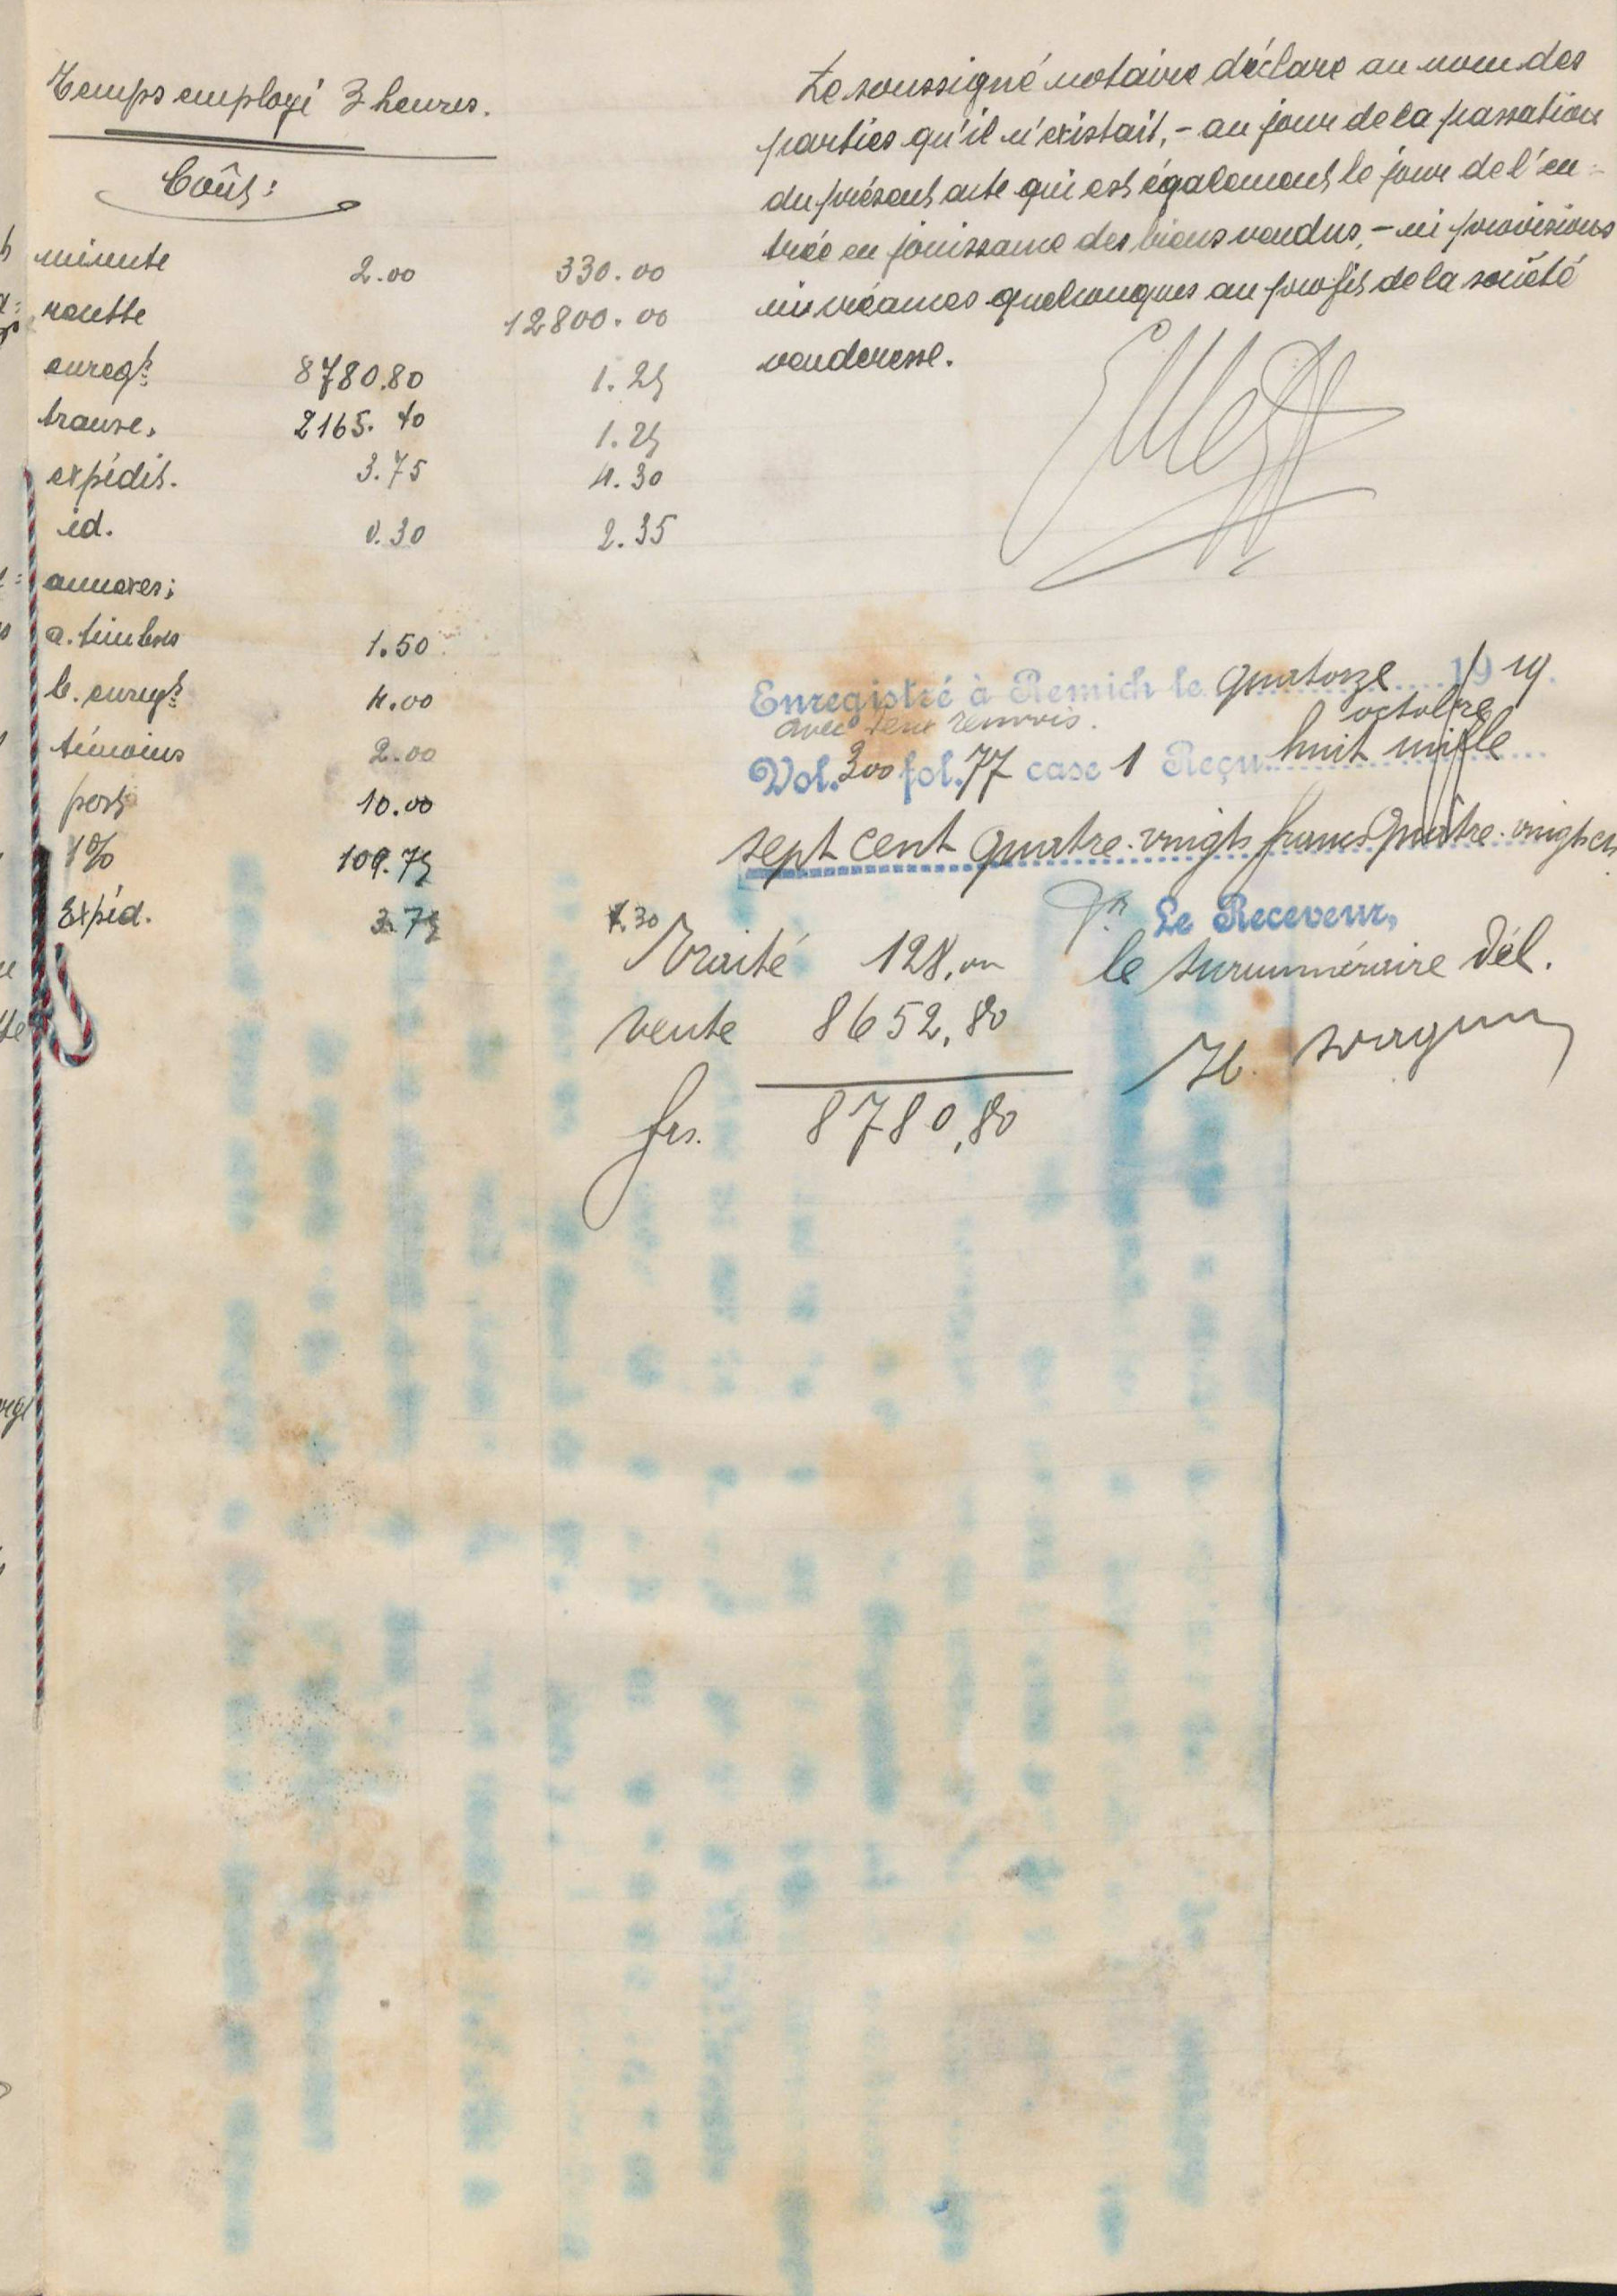 Temps employé 3 heures.
Coût:
minute 2.00 330.00
recette 12800.00
enregt. 8780.80 1.25
transc. 2165.40 1.25
expédit. 3.75 4.30
id. 0.30 2.35
annexes:
a. timbres 1.50
b. enregt. 4.00
témoins 2.00
port 10.00
1% 109.75
Expéd. 3.75 1.30
Le soussigné notaire déclare au nom des
parties qu'il n'existait, - au jour de la passation
du présent acte qui est également le jour de l'en=
trée en jouissance des biens vendus, - ni provisions
ni créances quelconques au profit de la société
venderesse.
Enregistré à Remich le quatorze octobre 1919.
avec renvois.
Vol. 300 fol. 77 case 1 Reçu huit mille
sept cent quatre-vingts francs quatre-vingts
Le Receveur,
le surnuméraire dél.
Traité 128,
vente 8652,80
frs. 8780,80
Wagner